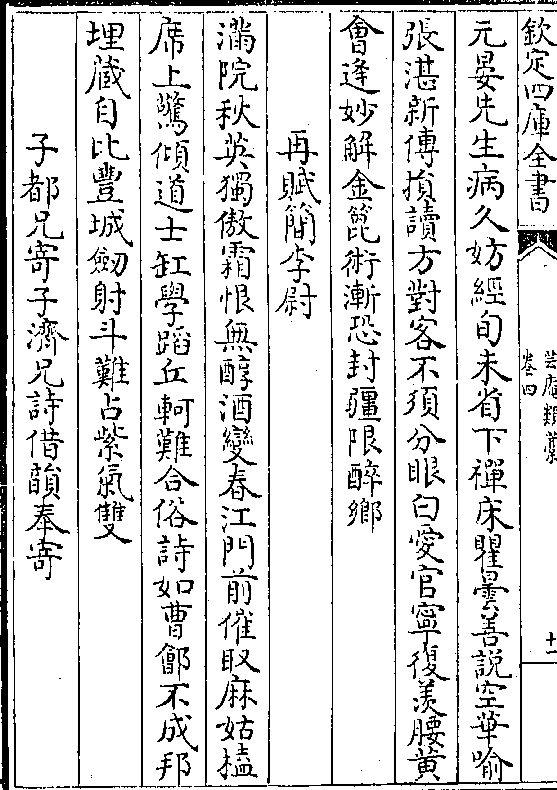 欽定四庫全書
芸庵類藁
卷四
十一
元晏先生病久妨經旬未省下禪床瞿曇善説空華喻
張湛新傳損讀方對客不須分眼白愛官寧復羨腰黄
會逢妙解金篦術漸恐封疆限醉鄉
再賦簡李尉
滿院秋英獨傲霜恨無醇酒變春江門前催取麻姑榼
席上驚傾道士缸學蹈丘軻難合俗詩如曹鄶不成邦
埋藏自比豐城劒射斗難占紫氣雙
子都兄寄子濟兄詩借韻奉寄